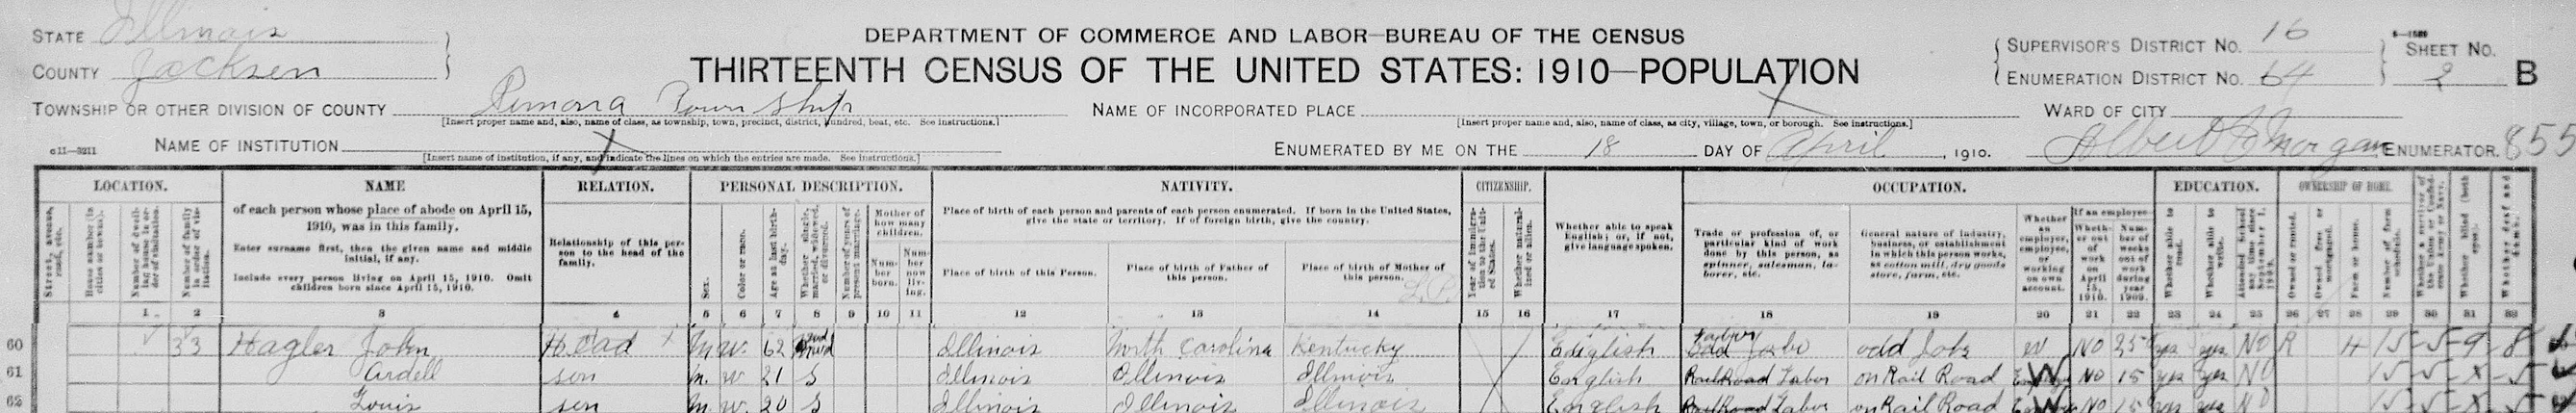 STATE Illinois DEPARTMENT OF COMMERCE AND LABOR—BUREAU OF THE CENSUS SUPERVISOR'S DISTRICT NO. 16 SHEET NO.
COUNTY Jackson THIRTEENTH CENSUS OF THE UNITED STATES: 1910—POPULATION ENUMERATION DISTRICT NO. 64 2 B
TOWNSHIP OR OTHER DIVISION OF COUNTY Pomona Township NAME OF INCORPORATED PLACE WARD OF CITY
[Insert proper name and, also, name of class, as township, town, precinct, district, hundred, beat, etc. See instructions.] [Insert proper name and, also, name of class, as city, village, town, or borough. See instructions.]
NAME OF INSTITUTION X ENUMERATED BY ME ON THE 18 DAY OF April, 1910. Albert Morgan ENUMERATOR. 855
[Insert name of institution, if any, and indicate the lines on which the entries are made. See instructions.]
LOCATION. NAME RELATION. PERSONAL DESCRIPTION. NATIVITY. CITIZENSHIP. OCCUPATION. EDUCATION. OWNERSHIP OF HOME.
of each person whose place of abode on April 15, 1910, was in this family.
Enter surname first, then the given name and middle initial, if any.
Include every person living on April 15, 1910. Omit children born since April 15, 1910.
Relationship of this person to the head of the family.
Sex.
Color or race.
Age at last birthday.
Whether single, married, widowed, or divorced.
Number of years of present marriage.
Mother of how many children.
Number born.
Number now living.
Place of birth of each person and parents of each person enumerated. If born in the United States, give the state or territory. If of foreign birth, give the country.
Place of birth of this Person. Place of birth of Father of this person. Place of birth of Mother of this person.
Year of immigration to the United States.
Whether naturalized or alien.
Whether able to speak English; or, if not, give language spoken.
Trade or profession of, or particular kind of work done by this person, as spinner, salesman, laborer, etc.
General nature of industry, business, or establishment in which this person works, as cotton mill, dry goods store, farm, etc.
Whether an employer, employee, or working on own account.
If an employee—
Whether out of work on April 15, 1910.
Number of weeks out of work during year 1909.
Whether able to read.
Whether able to write.
Attended school any time since September 1, 1909.
Owned or rented.
Owned free or mortgaged.
Farm or house.
Number of farm schedule.
1 2 3 4 5 6 7 8 9 10 11 12 13 14 15 16 17 18 19 20 21 22 23 24 25 26 27 28 29 30 31 32
60 33 Hagler John Head M W 62 Illinois North Carolina Kentucky English odd Jobs W No 35 yes yes No R H
61 Ardell son M W 21 S Illinois Illinois Illinois English RailRoad Labor on Rail Road W No 15 yes yes No
62 Louis son M W 20 S Illinois Illinois Illinois English RailRoad Labor on Rail Road W No 15 yes yes No